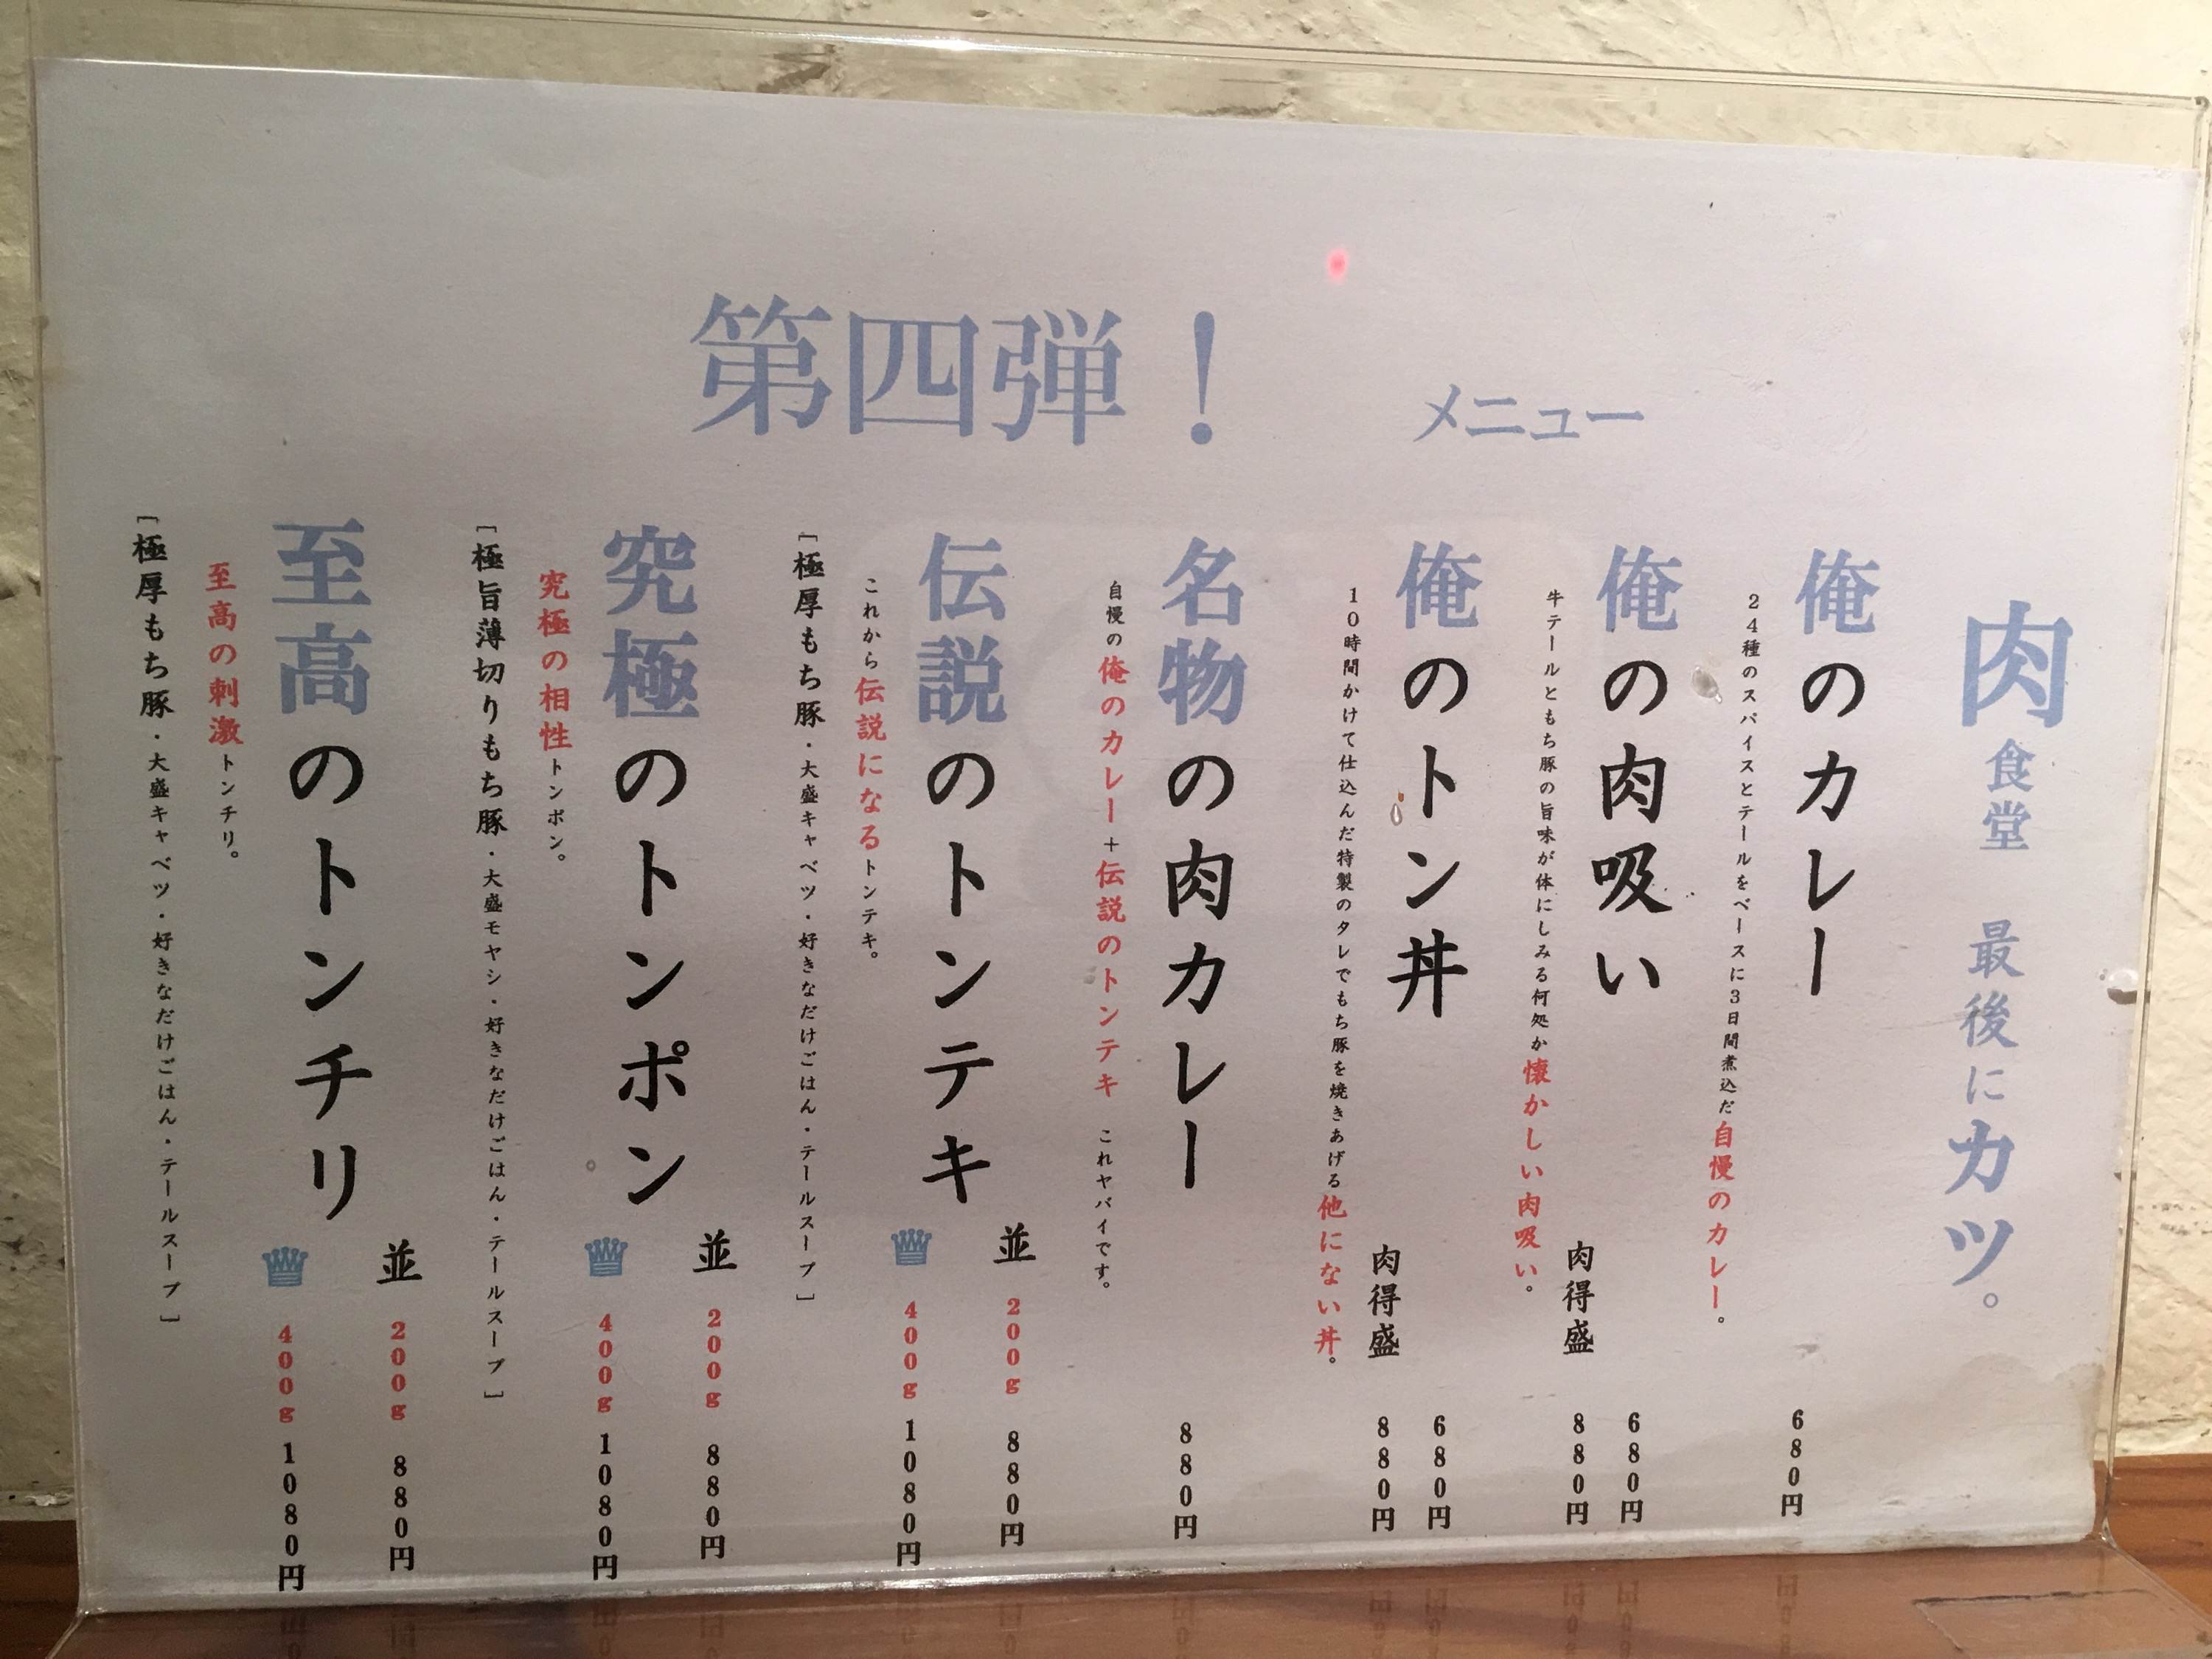 第四弾！ メニュー
肉食堂 最後にカツ。
俺のカレー 680円
24種のスパイスとテールをベースに3日間煮込だ自慢のカレー。
俺の肉吸い 680円
肉得盛 880円
牛テールともち豚の旨味が体にしみる何処か懐かしい肉吸い。
俺のトン丼 680円
肉得盛 880円
10時間かけて仕込んだ特製のタレでもち豚を焼きあげる他にない丼。
名物の肉カレー 880円
自慢の俺のカレー+伝説のトンテキ これヤバイです。
伝説のトンテキ 並 200g 880円
400g 1080円
これから伝説になるトンテキ。
[極厚もち豚・大盛キャベツ・好きなだけごはん・テールスープ]
究極のトンポン 並 200g 880円
400g 1080円
究極の相性トンポン。
[極旨薄切りもち豚・大盛モヤシ・好きなだけごはん・テールスープ]
至高のトンチリ 並 200g 880円
400g 1080円
至高の刺激トンチリ。
[極厚もち豚・大盛キャベツ・好きなだけごはん・テールスープ]